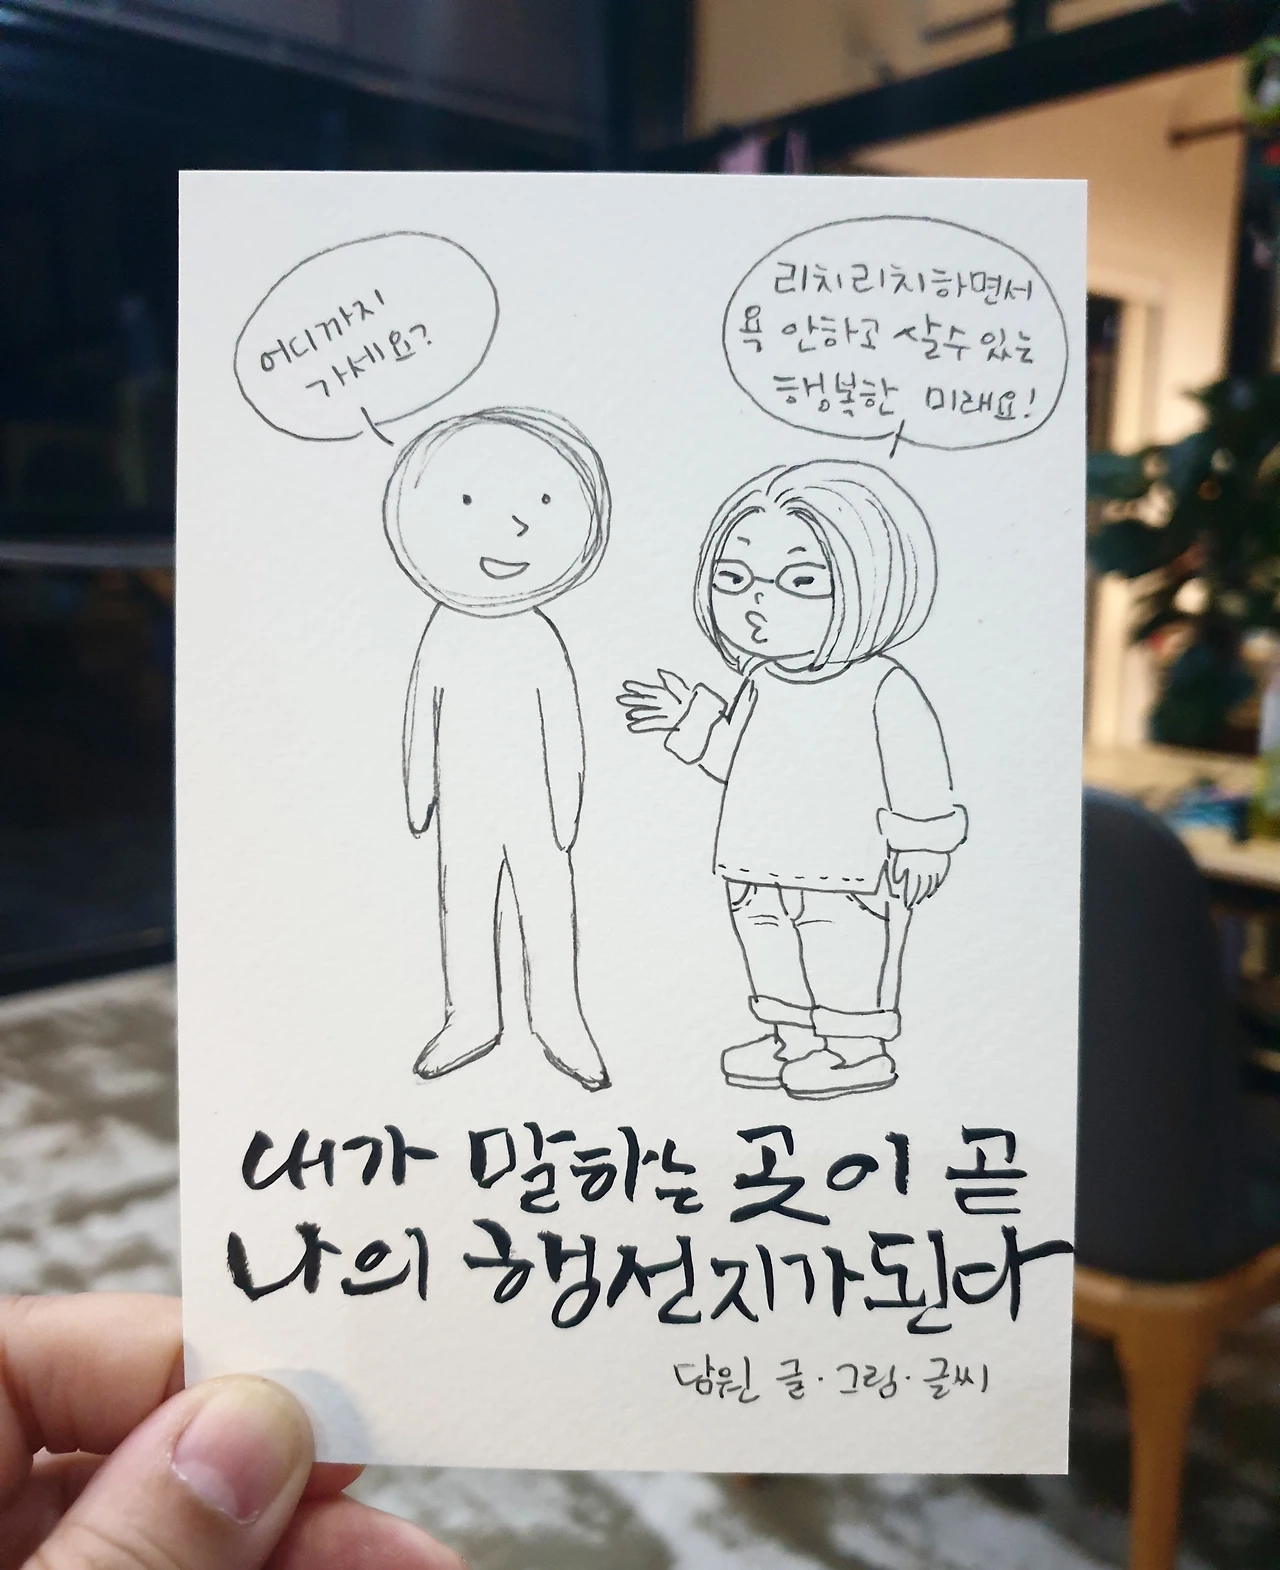 어디까지
가세요?
리치리치하면서
욕 안하고 살수 있는
행복한 미래요!
내가 말하는 곳이 곧
나의 행선지가된다
담원 글·그림·글씨